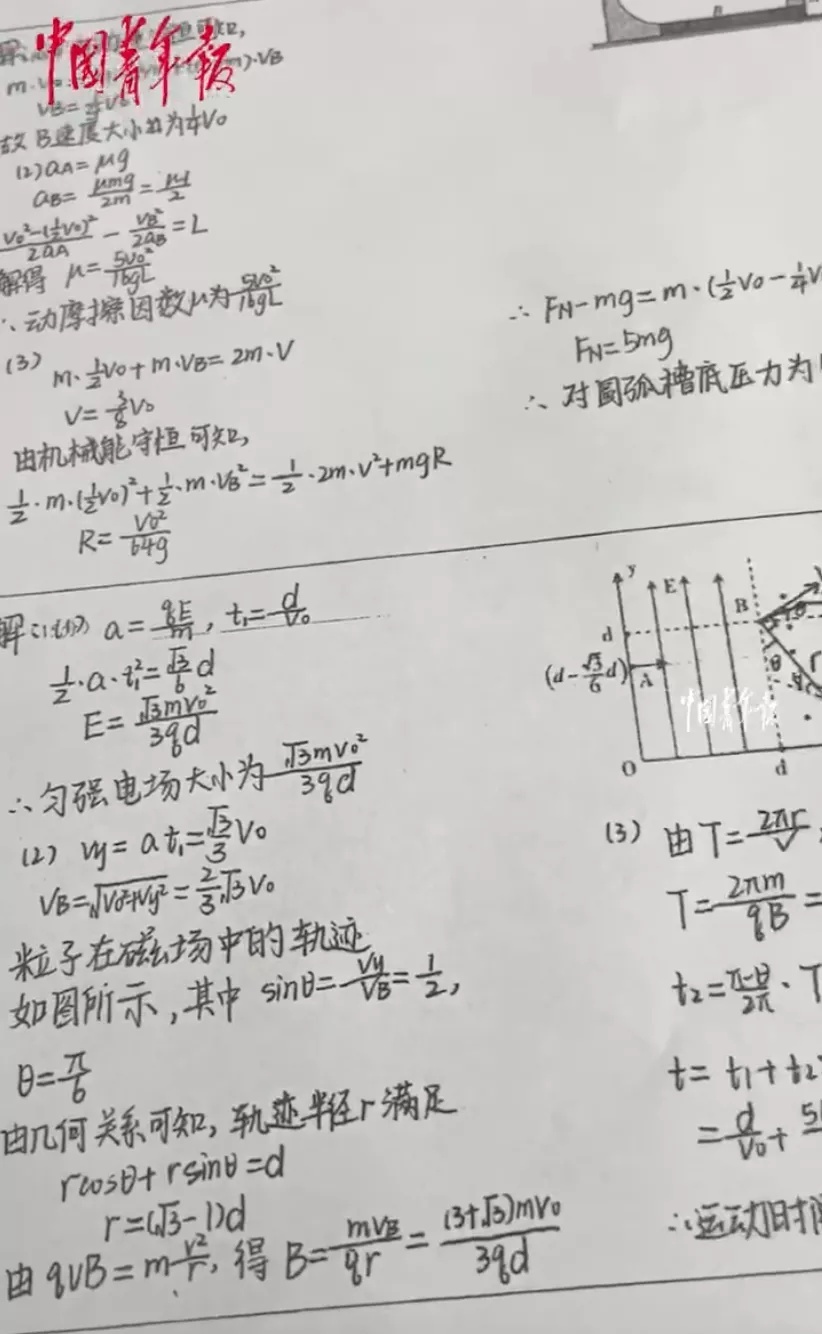 中国青年报
恒可知,
m·V₀
)·VB
VB=¼V₀
故B速度大小为¼V₀
(2) aA=μg
aB=μmg/2m=μg/2
(V₀²-(½V₀)²)/2aA - VB²/2aB=L
解得 μ=5V₀²/16gL
∴动摩擦因数μ为5V₀²/16gL
(3) m·½V₀+m·VB=2m·V
V=⅜V₀
由机械能守恒可知,
½·m·(½V₀)²+½·m·VB²=½·2m·V²+mgR
R=V₀²/64g
∴ FN-mg=m·(½V₀-¼V
FN=5mg
∴ 对圆弧槽底压力为
解:(1) a=qE/m, t₁=d/V₀
½·a·t₁²=√3/6 d
E=√3mV₀²/3qd
∴匀强电场大小为√3mV₀²/3qd
(2) Vy=at₁=√3/3 V₀
VB=√(V₀²+Vy²)=2/3 √3V₀
粒子在磁场中的轨迹
如图所示,其中 sinθ=Vy/VB=1/2,
θ=π/6
由几何关系可知,轨迹半径r满足
rcosθ+rsinθ=d
r=(√3-1)d
由 qVB=mV²/r, 得 B=mVB/qr=(3+√3)mV₀/3qd
y
E
B
θ
d
(d-√3/6 d)
A
θ
r
中国青年报
O
d
(3) 由T=2πr/V
T=2πm/qB=
t₂=(π-θ)/2π·T
t=t₁+t₂
=d/V₀+5
∴运动时间